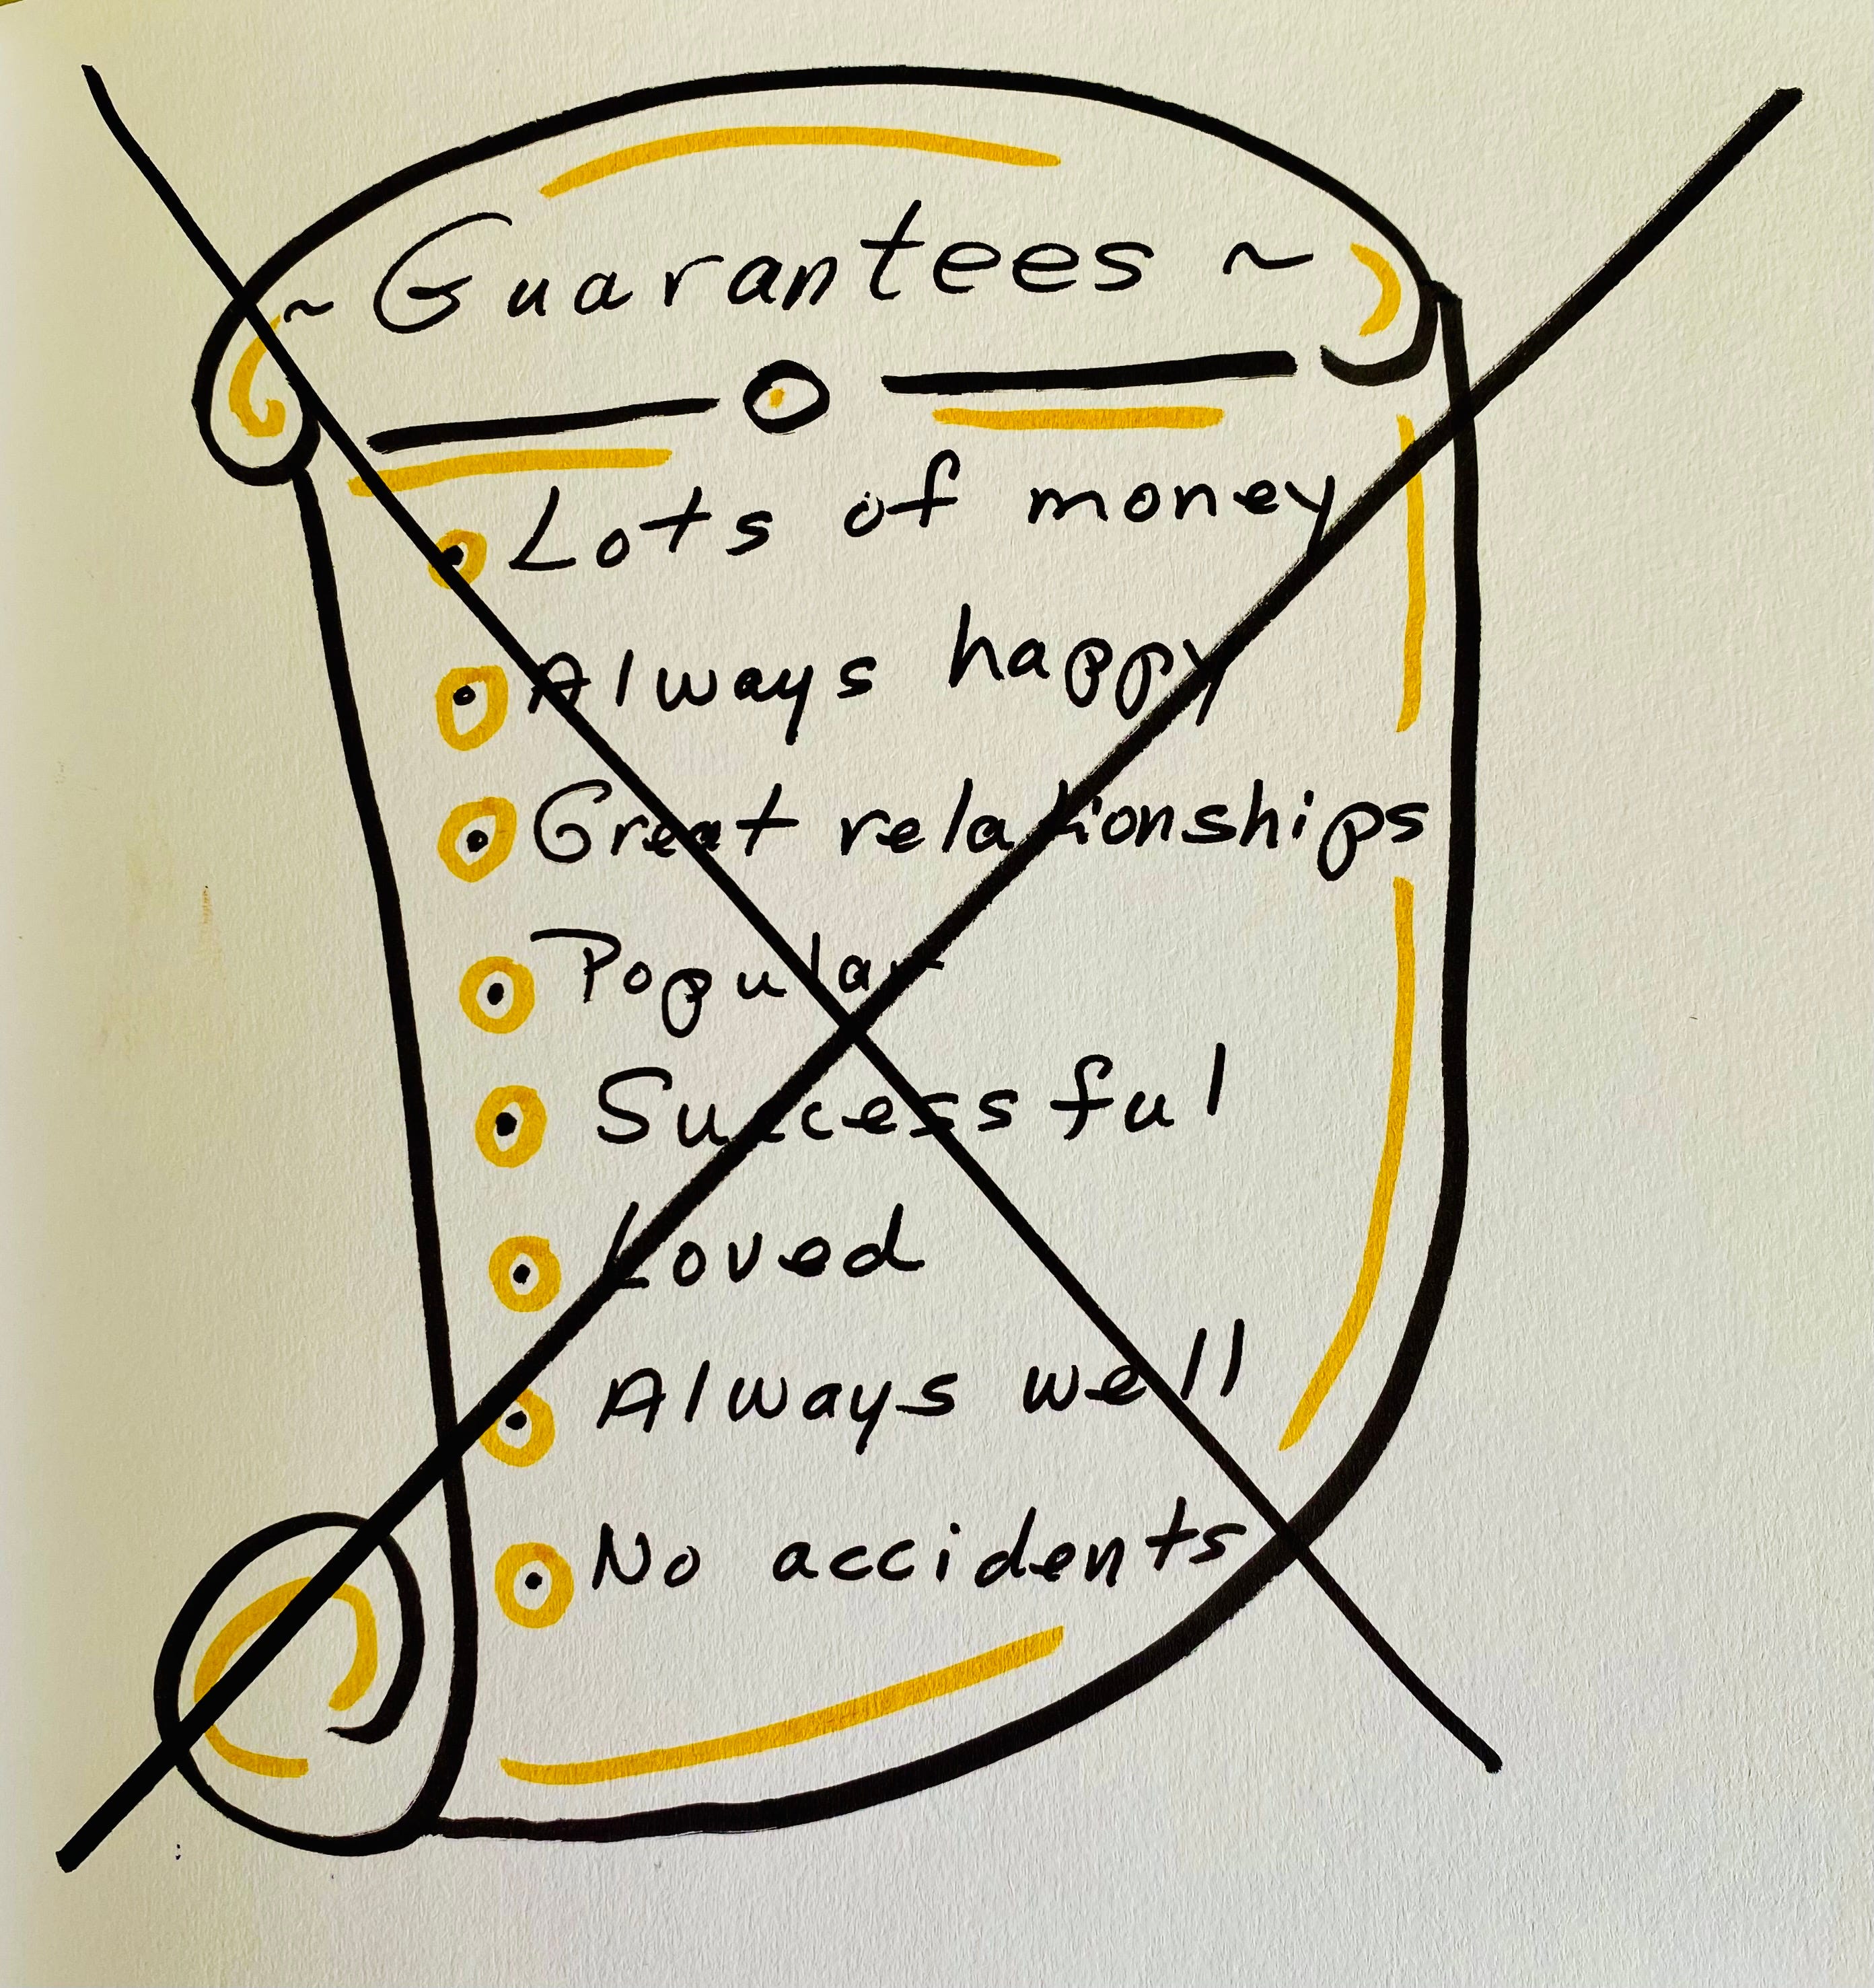 ~ Guarantees ~
• Lots of money
• Always happy
• Great relationships
• Popular
• Successful
• Loved
• Always well
• No accidents